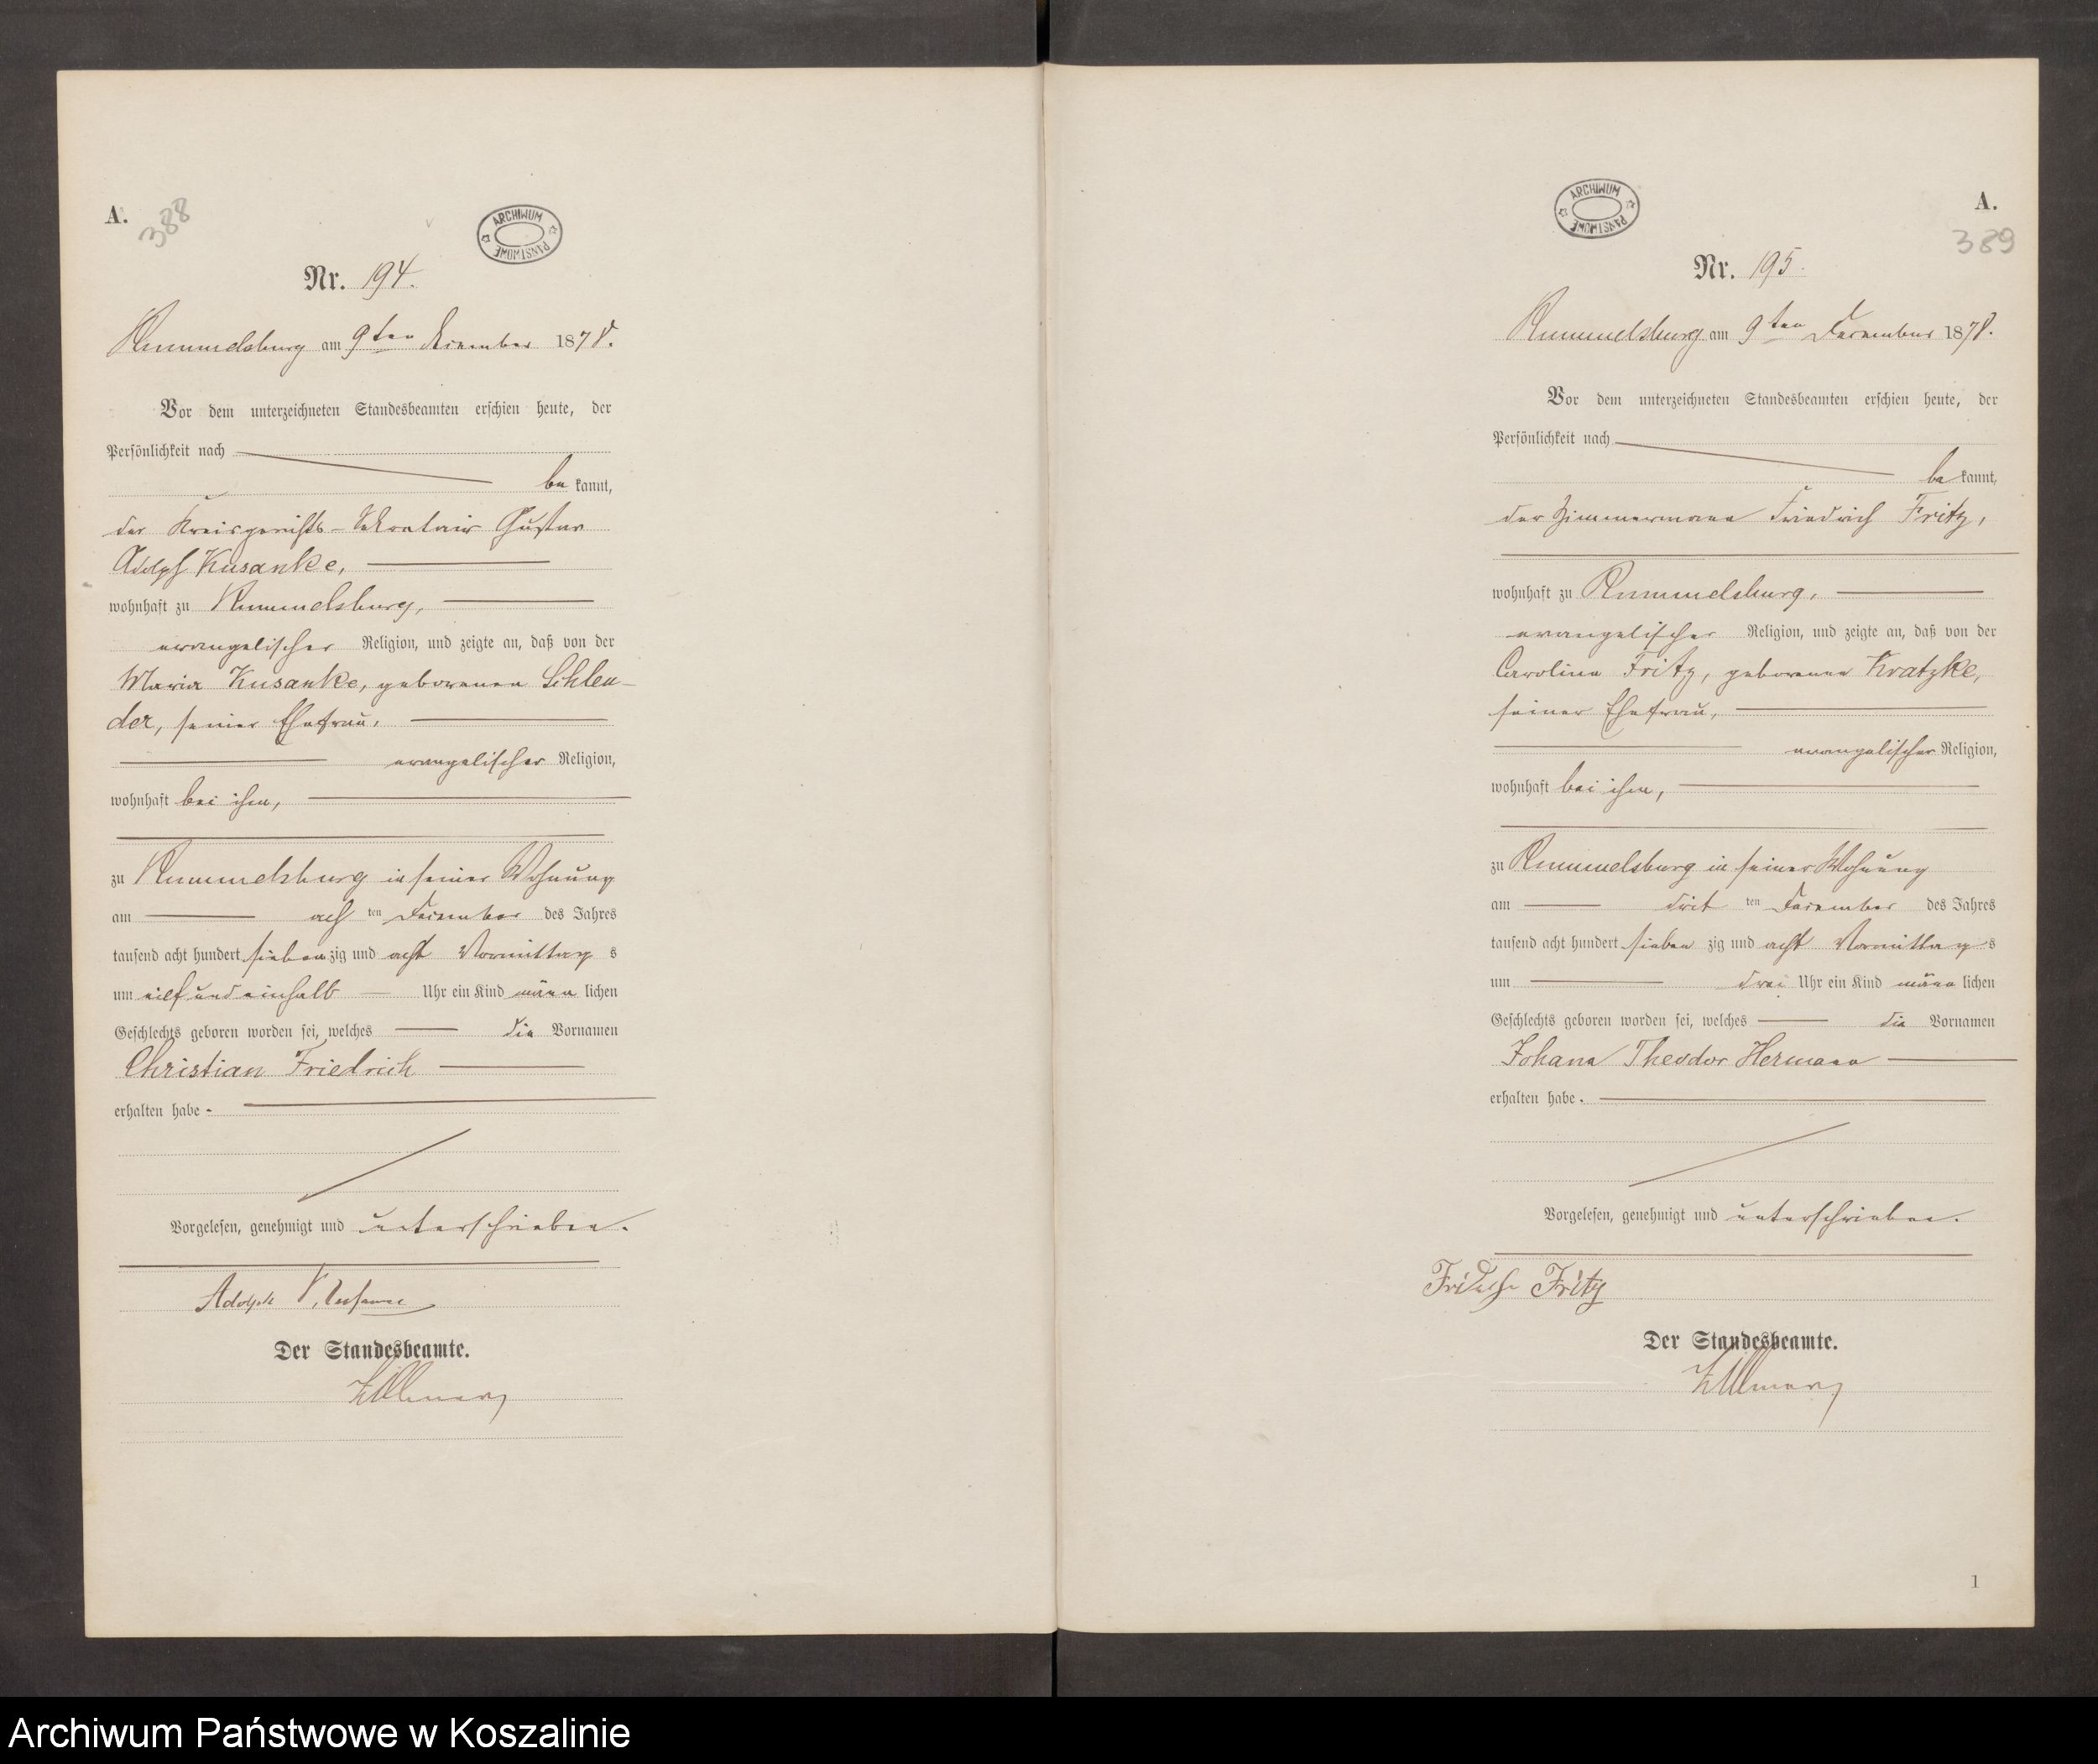 A.
388
ARCHIWUM
PAŃSTWOWE
Nr. 194.
Rummelsburg am 9ten Dezember 1878.
Vor dem unterzeichneten Standesbeamten erschien heute, der
Persönlichkeit nach
be kannt,
der Kreisgerichts-Sekretair Gustav
Adolph Kusanke,
wohnhaft zu Rummelsburg,
evangelischer Religion, und zeigte an, daß von der
Maria Kusanke, geborenen Schleu-
der, seiner Ehefrau,
evangelischer Religion,
wohnhaft bei ihm,
zu Rummelsburg in seiner Wohnung
am ach ten Dezember des Jahres
tausend acht hundert sieben zig und acht Vormittag s
um eilf und einhalb Uhr ein Kind männ lichen
Geschlechts geboren worden sei, welches die Vornamen
Christian Friedrich
erhalten habe.
Vorgelesen, genehmigt und unterschrieben.
Adolph Kusanke
Der Standesbeamte.
A.
389
ARCHIWUM
PAŃSTWOWE
Nr. 195.
Rummelsburg am 9ten Dezember 1878.
Vor dem unterzeichneten Standesbeamten erschien heute, der
Persönlichkeit nach
be kannt,
der Zimmermann Friedrich Fritz,
wohnhaft zu Rummelsburg,
evangelischer Religion, und zeigte an, daß von der
Caroline Fritz, geborenen Kratzke,
seiner Ehefrau,
evangelischer Religion,
wohnhaft bei ihm,
zu Rummelsburg in seiner Wohnung
am drit ten Dezember des Jahres
tausend acht hundert sieben zig und acht Vormittag s
um drei Uhr ein Kind männ lichen
Geschlechts geboren worden sei, welches die Vornamen
Johann Theodor Hermann
erhalten habe.
Vorgelesen, genehmigt und unterschrieben.
Fritz
Der Standesbeamte.
1
Archiwum Państwowe w Koszalinie